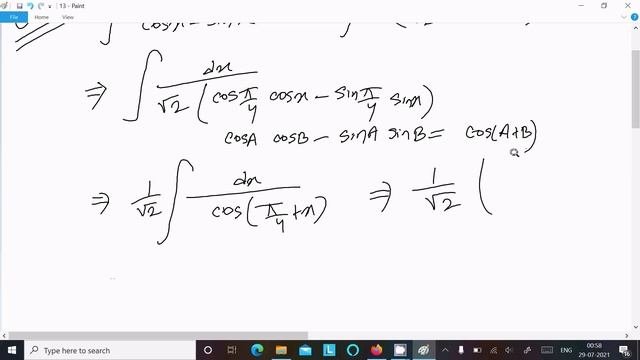 13 - Paint
File Home View
cosx - sinx
⇒ ∫ dx / √2 (cos π/4 cosx - sin π/4 sinx)
cosA cosB - sinA sinB = cos(A+B)
⇒ 1/√2 ∫ dx / cos(π/4 + x) ⇒ 1/√2 (
Type here to search
ENG 00:58
29-07-2021